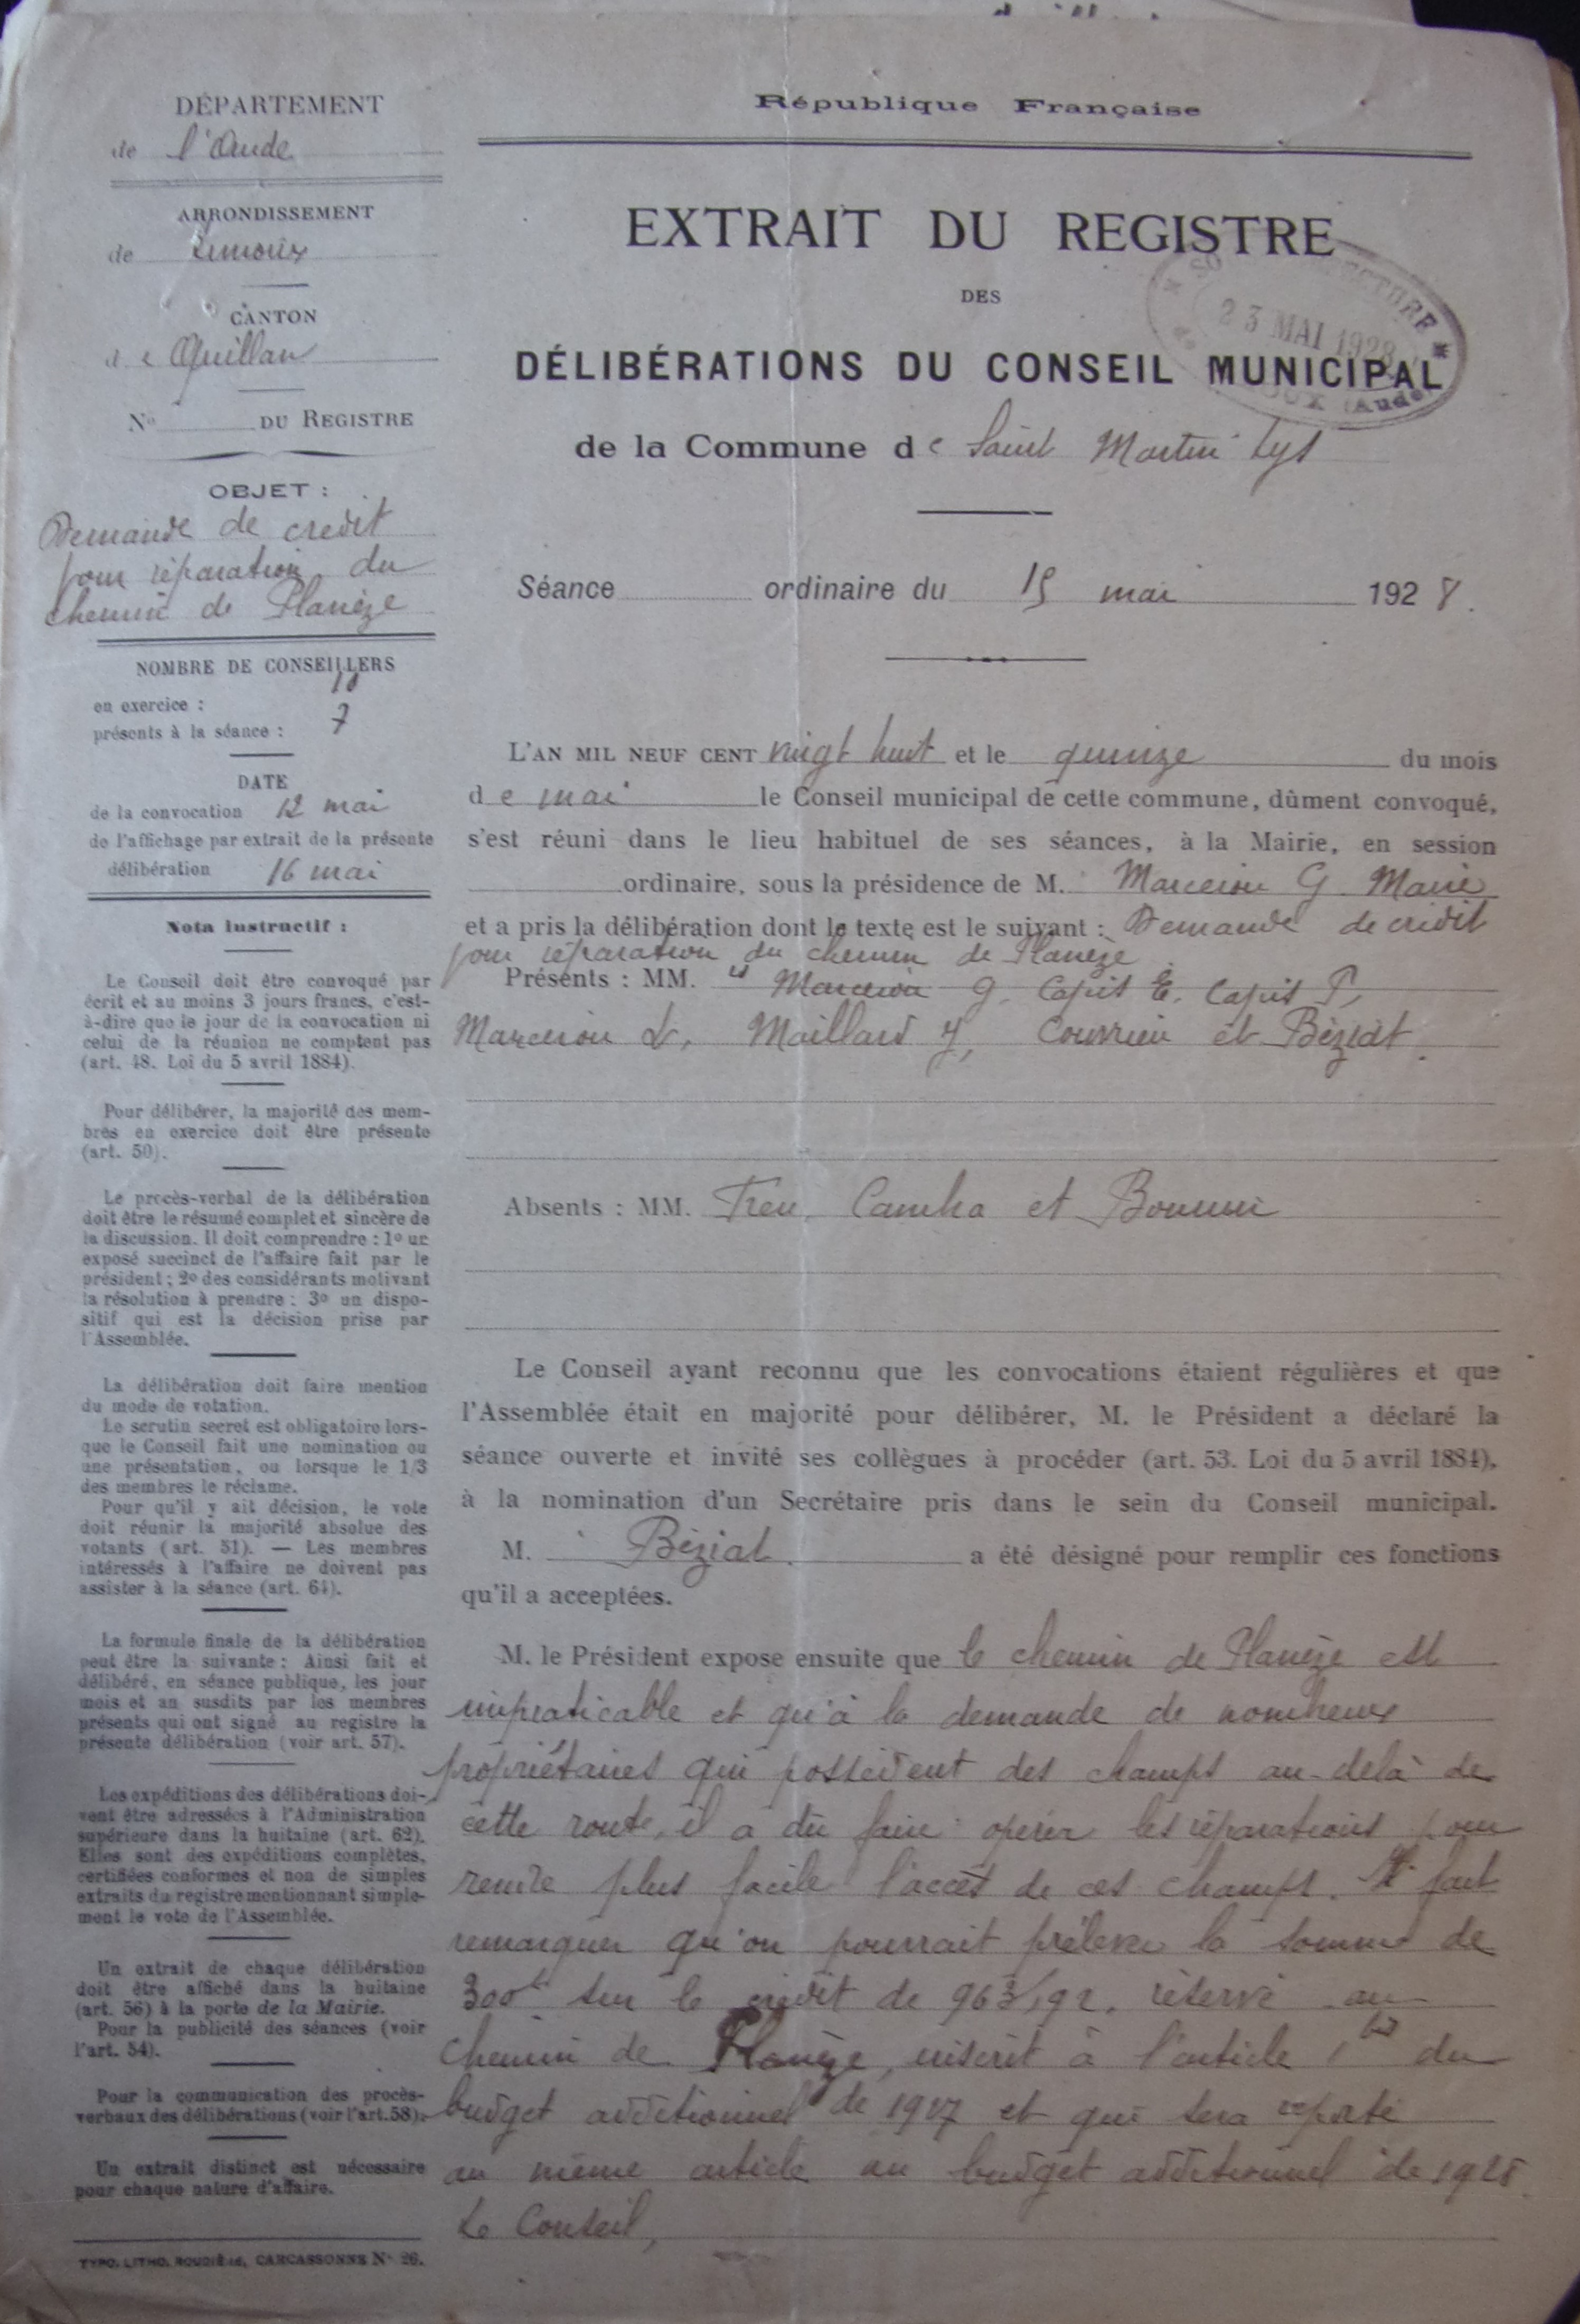 DÉPARTEMENT
de l'Aude
ARRONDISSEMENT
de Limoux
CANTON
de Quillan
No DU REGISTRE
OBJET :
Demande de credit
pour réparation du
chemin de Planèze
NOMBRE DE CONSEILLERS
10
en exercice :
présents à la séance : 7
DATE
de la convocation 12 mai
de l'affichage par extrait de la présente
délibération 16 mai
Nota Instructif :
Le Conseil doit être convoqué par
écrit et au moins 3 jours francs, c'est-
à-dire que le jour de la convocation ni
celui de la réunion ne comptent pas
(art. 48. Loi du 5 avril 1884).
Pour délibérer, la majorité des mem-
bres en exercice doit être présente
(art. 50).
Le procès-verbal de la délibération
doit être le résumé complet et sincère de
la discussion. Il doit comprendre : 1o un
exposé succinct de l'affaire fait par le
président ; 2o des considérants motivant
la résolution à prendre ; 3o un dispo-
sitif qui est la décision prise par
l'Assemblée.
La délibération doit faire mention
du mode de votation.
Le scrutin secret est obligatoire lors-
que le Conseil fait une nomination ou
une présentation, ou lorsque le 1/3
des membres le réclame.
Pour qu'il y ait décision, le vote
doit réunir la majorité absolue des
votants (art. 51). — Les membres
intéressés à l'affaire ne doivent pas
assister à la séance (art. 64).
La formule finale de la délibération
peut être la suivante : Ainsi fait et
délibéré, en séance publique, les jour
mois et an susdits par les membres
présents qui ont signé au registre la
présente délibération (voir art. 57).
Les expéditions des délibérations doi-
vent être adressées à l'Administration
supérieure dans la huitaine (art. 62).
Elles sont des expéditions complètes,
certifiées conformes et non de simples
extraits du registre mentionnant simple-
ment le vote de l'Assemblée.
Un extrait de chaque délibération
doit être affiché dans la huitaine
(art. 56) à la porte de la Mairie.
Pour la publicité des séances (voir
l'art. 54).
Pour la communication des procès-
verbaux des délibérations (voir l'art. 58).
Un extrait distinct est nécessaire
pour chaque nature d'affaire.
TYPO. LITHO. ROUDIÈRE, CARCASSONNE No 26.
République Française
EXTRAIT DU REGISTRE
DES
23 MAI 1928
(Aude)
DÉLIBÉRATIONS DU CONSEIL MUNICIPAL
de la Commune de Saint Martin Lys
Séance ordinaire du 15 mai 1928.
L'AN MIL NEUF CENT vingt huit et le quinze du mois
de mai le Conseil municipal de cette commune, dûment convoqué,
s'est réuni dans le lieu habituel de ses séances, à la Mairie, en session
ordinaire, sous la présidence de M. Marcerou G. Maire
et a pris la délibération dont le texte est le suivant : Demande de crédit
pour réparation du chemin de Planèze
Présents : MM. rs Marcerou G. Capit E, Capit P,
Marcerou L, Maillard J, Courrieu et Béziat.
Absents : MM. Treu, et
Le Conseil ayant reconnu que les convocations étaient régulières et que
l'Assemblée était en majorité pour délibérer, M. le Président a déclaré la
séance ouverte et invité ses collègues à procéder (art. 53. Loi du 5 avril 1884),
à la nomination d'un Secrétaire pris dans le sein du Conseil municipal.
M. Béziat. a été désigné pour remplir ces fonctions
qu'il a acceptées.
M. le Président expose ensuite que le chemin de Planèze est
impraticable et qu'à la demande de nombreux
propriétaires qui possèdent des champs au-delà de
cette route, il a dû faire opérer les réparations pour
rendre plus facile l'accès de ces champs. Il fait
remarquer qu'on pourrait prélever la somme de
300f sur le crédit de 963,92, réservé au
chemin de Planèze, inscrit à l'article 1er du
budget additionnel de 1927 et qui sera reporté
au même article au budget additionnel de 1928.
Le Conseil,